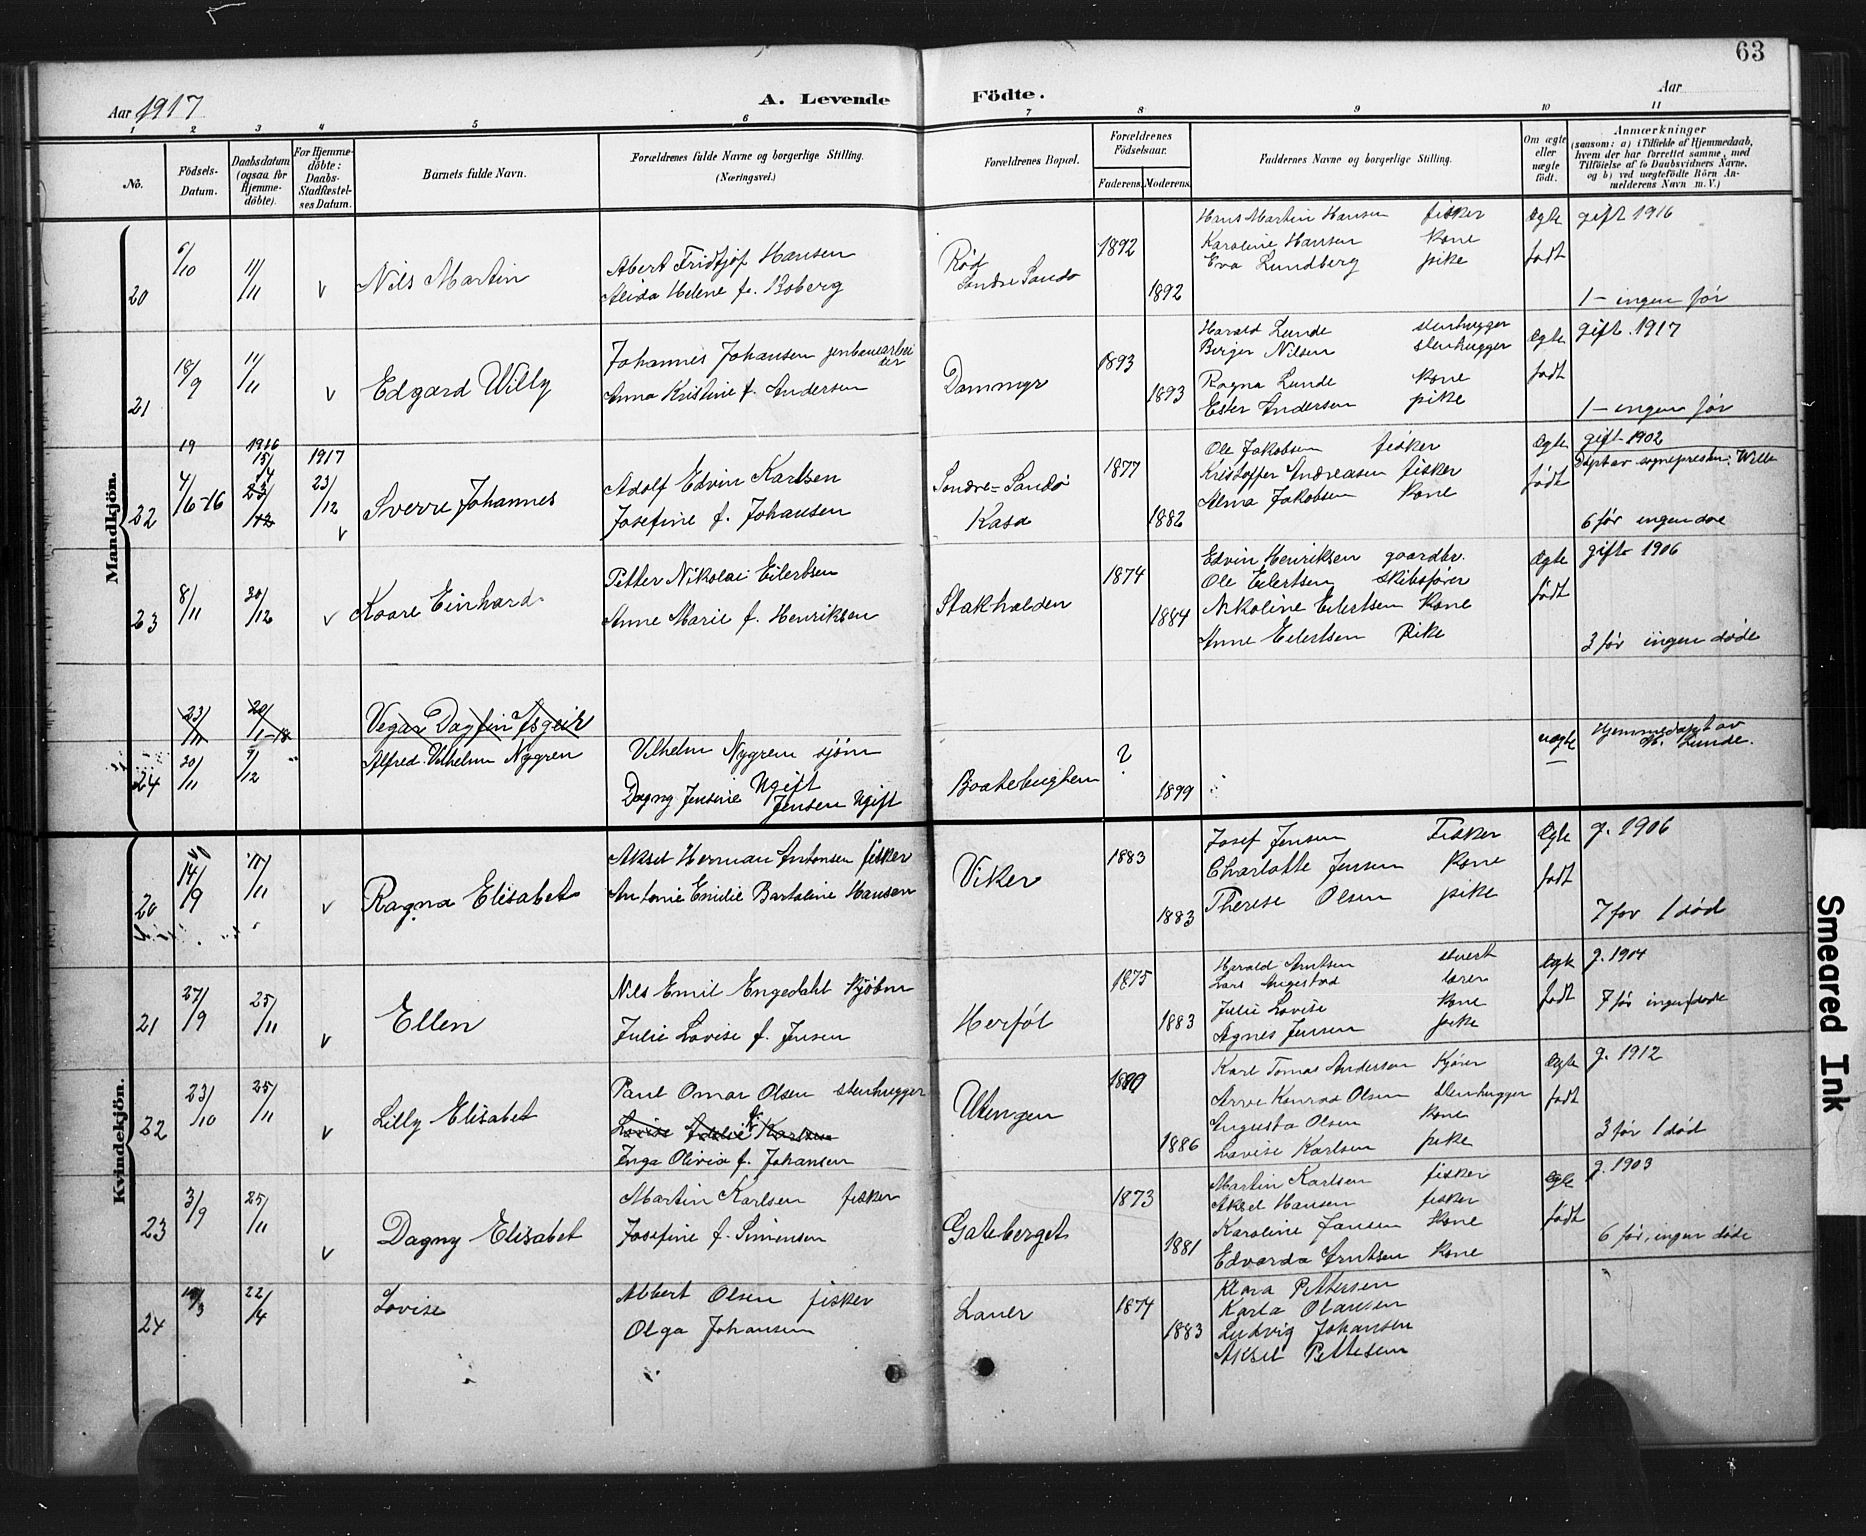 63
Aar 1917
A. Levende Födte.
Aar
1 2 3 4 5 6 7 8 9 10 11
No.
Födsels-Datum.
Daabsdatum (ogsaa for Hjemme-döbte).
For Hjemme-döbte: Daabs-Stadfæstel-ses Datum.
Barnets fulde Navn.
Forældrenes fulde Navne og borgerlige Stilling.
(Næringsvei.)
Forældrenes Bopæl.
Forældrenes Födselsaar.
Faderens. Moderens.
Faddernes Navne og borgerlige Stilling.
Om ægte eller uægte födt.
Anmærkninger
(saasom: a) i Tilfælde af Hjemmedaab, hvem der har forrettet samme, med Tilföielse af to Daabsvidners Navne, og b) ved uægtefödte Börn Anmelderens Navn m. V.)
Mandkjön.
20 6/10 11/11 v Nils Martin
Abert Fridtjof Hansen
Alida Helene f. Boberg
Rød
Søndre Sandø
1892
1892
Hans Martin Hansen fisker
Karoline Hansen kone
Eva Lundberg pike
Ægte født
gift 1916
1 - ingen før
21 18/9 11/11 v Edgard Willy
Johannes Johansen jenbanearbeider
Anna Kristine f. Andersen
Dammyr
1893
1893
Harald Lunde stenhugger
Berger Nilsen stenhugger
Ragna Lunde kone
Ester Andersen pike
Ægte født
gift. 1917
1 - ingen før
22 19 4/6-16
1916 15/
23/12
1917 23/12 v
Sverre Johannes
Adolf Edvin Karlsen
Josefine f. Johansen
Søndre-Sandø
Kasa
1877
1882
Ole Jakobsen fisker
Kristoffer Andreasen fisker
Alma Jakobsen kone
Ægte født
gift 1902
Døpt av sogneprest Wille
6 før ingen døe
23 8/11 30/12 v Kaare Einhard
Petter Nikolai Eilertsen
Anne Marie f. Henriksen
Stakhalden
1874
1884
Edvin Henriksen gaardbr.
Ole Eilertsen skibsfører
Nikoline Eilertsen kone
Anne Eilertsen Pike
Ægte født
gift 1906
3 før ingen døde
23/11 20/1-18 Vegar Dagfin Asgeir
24 30/11 9/12 Alfred Vilhelm Nygren
Vilhelm Nygren sjøm
Dagny Jensine Ugift
Jensen Ugift
?
1899
uægte
Hjemmedøpt av
Lunde.
Kvindekjön.
20 14/9 11/11 v Ragna Elisabet
Aksel Herman Antonsen fisker
Antonie Emilie Bartoline Hansen
Viker
1883
1883
Josef Jensen Fisker
Charlotte Jensen kone
Therese Olsen pike
Ægte født
g. 1906
7 før 1 død
21 27/9 25/11 v Ellen
Nils Emil Engedahl kjøbm
Julie Lovise f. Jensen
Herføl
1875
1883
Harald Arntsen stuert
Lars Angestad lærer
Julie Lovise kone
Agnes Jensen pike
Ægte født
g. 1904
7 før ingen døde
22 23/10 25/11 v Lilly Elisabet
Paul Omar Olsen stenhugger
Inga Olivia f. Johansen
Utengen
1880
1886
Karl Tomas Andersen Kjører
Arve Konrad Olsen stenhugger
Augusta Olsen kone
Lovise Karlsen pike
Ægte født
g. 1912
3 før 1 død
23 3/9 25/11 v Dagny Elisabet
Martin Karlsen fisker
Josefine f. Simensen
Gateberget
1873
1881
Martin Karlsen fisker
Aksel Hansen fisker
Karoline Jansen kone
Edvarda Arntsen kone
Ægte født
g. 1903
6 før, ingen døde
24 22/4 Lovise
Albert Olsen fisker
Olga Johansen
Lauer
1874
1883
Klara Pettersen
Karla Olausen
Ludvig Johansen
Aksel Pettersen
Smeared Ink